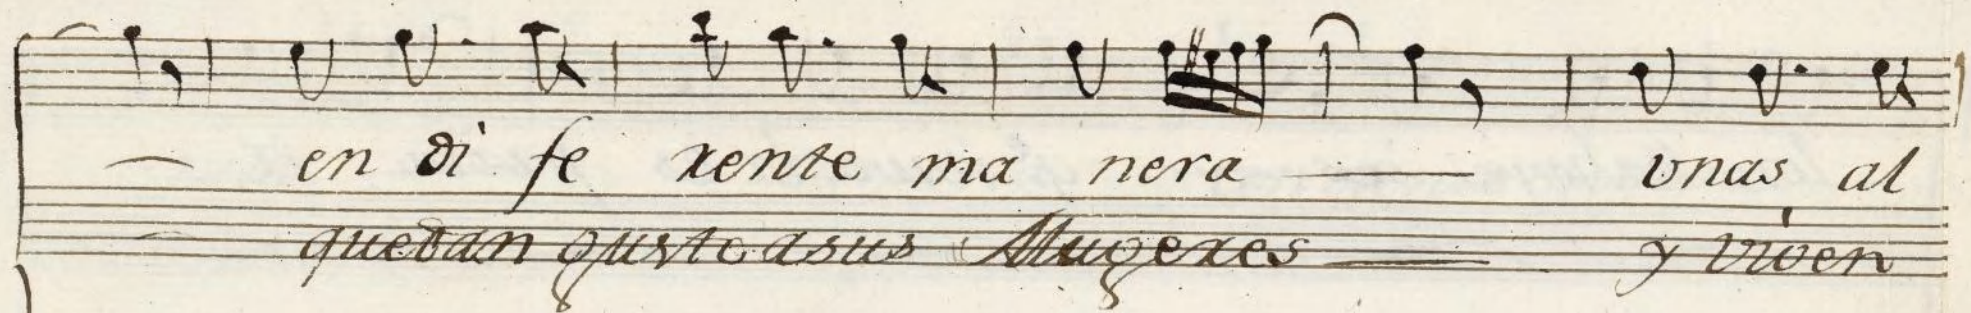 en di fe rente ma nera vnas al
quedan gusto asus Mugeres y viven